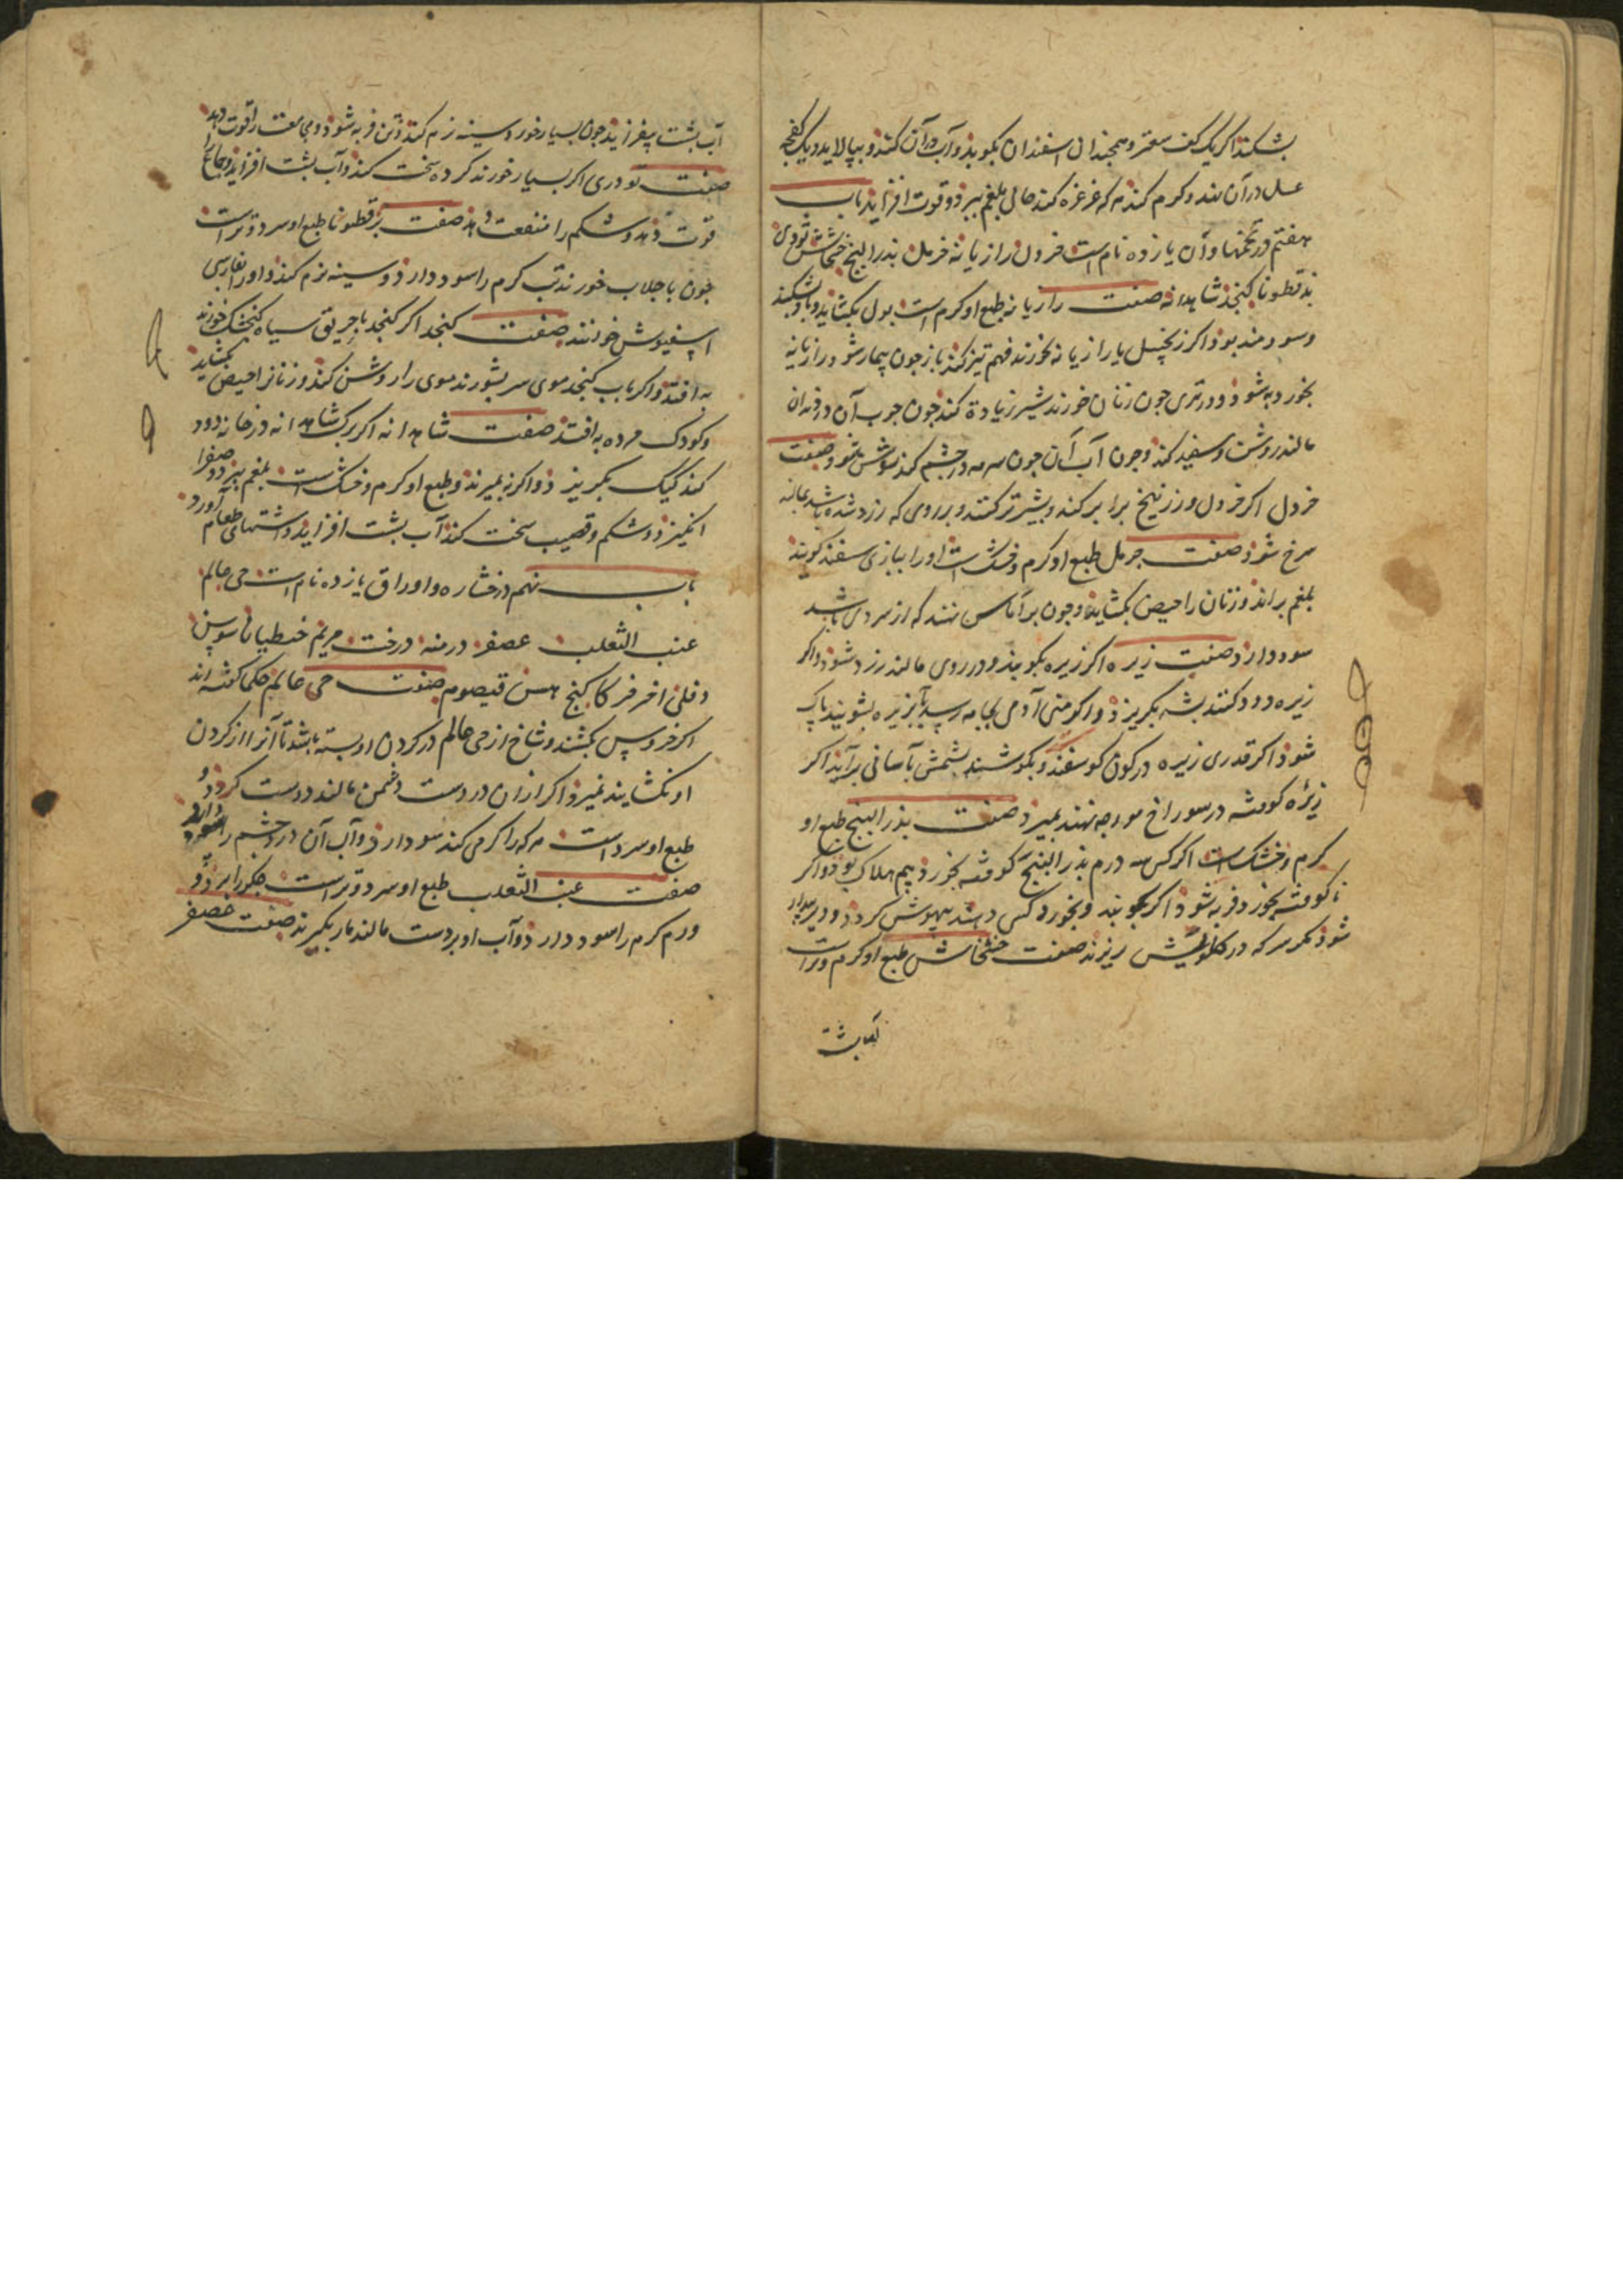 بشکند اکر یک کف سعتر و همچندان اسفندان بکوبند و آب در آن کنند و بپالاید و یک کفجه
عسل در آن نهند و کرم کنند هر که غرغره کند حالی بلغم ببرد و قوت افزاید باب
هفتم در تخمها و آن یازده نام است خردل رازیانه خرمل بذر البنج خشخاش تودری
بذقطونا کنجد شاهدانه صفت رازیانه طبع او کرم است بول بکشاید و باد بشکند
و سودمند بود اکر زنجبیل با رازیانه بخورند فهم تیز کند باز چون بیمار شود رازیانه
بخورد به شود و در تری چون زنان خورند شیر زیادة کند چون چوب آن در دندان
مالند روشن و سفید کند و چون آب آن چون سرمه در چشم کنند روشن شود صفت
خردل اکر خردل و زرنیخ برابر کنند و بر روی که زرد شده باشد بمالند
سرخ شود صفت حرمل طبع او کرم و خشک است او را بپارسی سفند کویند
بلغم براند و زنان را حیض بکشاید و چون بر آماس نهند که از سردی باشد
سود دارد صفت زیره اکر زیره بکوبند و در روی مالند زرد شود و اکر
زیره دود کنند پشه بکریزد و اکر منی آدمی بجامه رسد بآب زیره بشویند پاک
شود اکر قدری زیره در کون کوسفند و بکوشند پشمش بآسانی برآید اکر
زیره کوفته در سوراخ مورچه نهند بمیرد صفت بذر البنج طبع او
کرم و خشک است اکر کس سه درم بذر البنج کوفته بخورد بیم هلاک بود و اکر
ناکوفته بخورد فربه شود اکر بکوبند و بخورد کسی دهند بیهوش کردد و دیر بیدار
شود مکر سرکه در کلویش ریزند صفت خشخاش طبع او کرم و تر است
آب پشت
آب پشت بیفزاید چون بسیار خورد و سینه نرم کند و تن فربه شود و مجامعت را قوت دهد
صفت تودری اکر بسیار خورند کرده سخت کند و آب پشت افزاید و جماع را
قوت دهد و شکم را منفعت دهد صفت بزقطونا طبع او سرد و تر است
چون با جلاب خورند تب کرم را سود دارد و سینه نرم کند و او را بفارسی
اسفیوش خوانند صفت کنجد اکر کنجد با خریق سیاه کنجشک خورند
به افتد و اکر بآب کنجد موی سر بشورند موی را روشن کند و زنانرا حیض بکشاید
و کودک مرده به افتد صفت شاهدانه اکر برک شاهدانه در خانه دود
کنند کیک بکریزد و اکر نه بمیرند و طبع او کرم و خشک است بلغم ببرد و صفرا
انکیزد و شکم و قضیب سخت کند آب پشت افزاید و اشتهای طعام آورد
باب نهم در خشاره و اوراق یازده نام است حی عالم
عنب الثعلب عصفر درمنه درخت مریم خنطیانا سوسن
دفلی اخر فر کاکنج هسن قیصوم صفت حی عالم حکما کفته اند
اکر خروس بکشند و شاخ از حی عالم در کردن او بسته باشد تا آنرا از کردن
او نکشایند نمیرد اکر از آن در دست دشمن مالند دوست کردد و
طبع او سرد است هر که را کرمی کند سود دارد و آب آن درد چشم را سود دارد
صفت عنب الثعلب طبع او سرد و تر است جکر را برد و
ورم کرم را سود دارد و آب او بر دست مالند مار بکیرند صفت عصفر